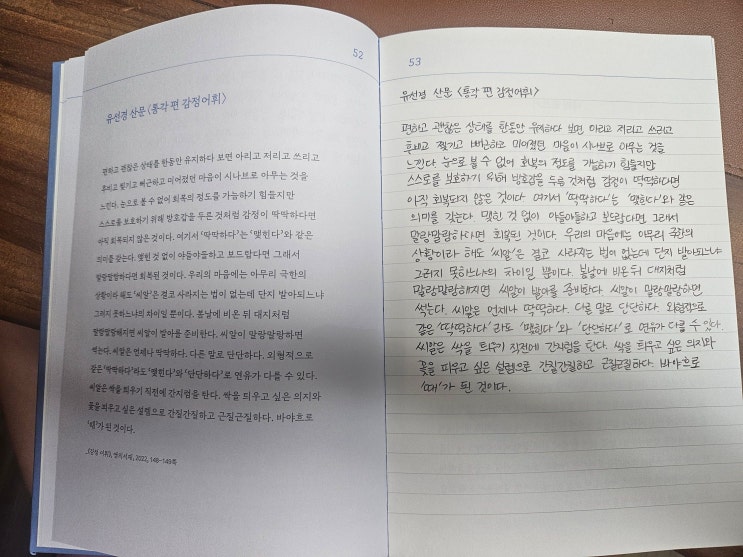 52
유선경 산문 <통각 편 감정어휘>
편하고 괜찮은 상태를 한동안 유지하다 보면 아리고 저리고 쓰리고
후비고 찢기고 뻐근하고 미어졌던 마음이 시나브로 아무는 것을
느낀다. 눈으로 볼 수 없어 회복의 정도를 가늠하기 힘들지만
스스로를 보호하기 위해 방호갑을 두른 것처럼 감정이 딱딱하다면
아직 회복되지 않은 것이다. 여기서 ‘딱딱하다’는 ‘맺힌다’와 같은
의미를 갖는다. 맺힌 것 없이 야들야들하고 보드랍다면 그래서
말랑말랑하다면 회복된 것이다. 우리의 마음에는 아무리 극한의
상황이라 해도 ‘씨알’은 결코 사라지는 법이 없는데 단지 발아되느냐
그러지 못하느냐의 차이일 뿐이다. 봄날에 비온 뒤 대지처럼
말랑말랑해지면 씨알이 발아를 준비한다. 씨알이 말랑말랑하면
썩는다. 씨알은 언제나 딱딱하다. 다른 말로 단단하다. 외형적으로
같은 ‘딱딱하다’라도 ‘맺힌다’와 ‘단단하다’로 연유가 다를 수 있다.
씨알은 싹을 틔우기 직전에 간지럼을 탄다. 싹을 틔우고 싶은 의지와
꽃을 피우고 싶은 설렘으로 간질간질하고 근질근질하다. 바야흐로
‘때’가 된 것이다.
_『감정 어휘』, 앤의서재, 2022, 148-149쪽
53
유선경 산문 <통각 편 감정어휘>
편하고 괜찮은 상태를 한동안 유지하다 보면 아리고 저리고 쓰리고
후비고 찢기고 뻐근하고 미어졌던 마음이 시나브로 아무는 것을
느낀다. 눈으로 볼 수 없어 회복의 정도를 가늠하기 힘들지만
스스로를 보호하기 위해 방호갑을 두른 것처럼 감정이 딱딱하다면
아직 회복되지 않은 것이다. 여기서 '딱딱하다'는 '맺힌다'와 같은
의미를 갖는다. 맺힌 것 없이 야들야들하고 보드랍다면 그래서
말랑말랑하다면 회복된 것이다. 우리의 마음에는 아무리 극한의
상황이라 해도 '씨알'은 결코 사라지는 법이 없는데 단지 발아되느냐
그러지 못하느냐의 차이일 뿐이다. 봄날에 비온 뒤 대지처럼
말랑말랑해지면 씨알이 발아를 준비한다. 씨알이 말랑말랑하면
썩는다. 씨알은 언제나 딱딱하다. 다른 말로 단단하다. 외형적으로
같은 '딱딱하다'라도 '맺힌다'와 '단단하다'로 연유가 다를 수 있다.
씨알은 싹을 틔우기 직전에 간지럼을 탄다. 싹을 틔우고 싶은 의지와
꽃을 피우고 싶은 설렘으로 간질간질하고 근질근질하다. 바야흐로
'때'가 된 것이다.